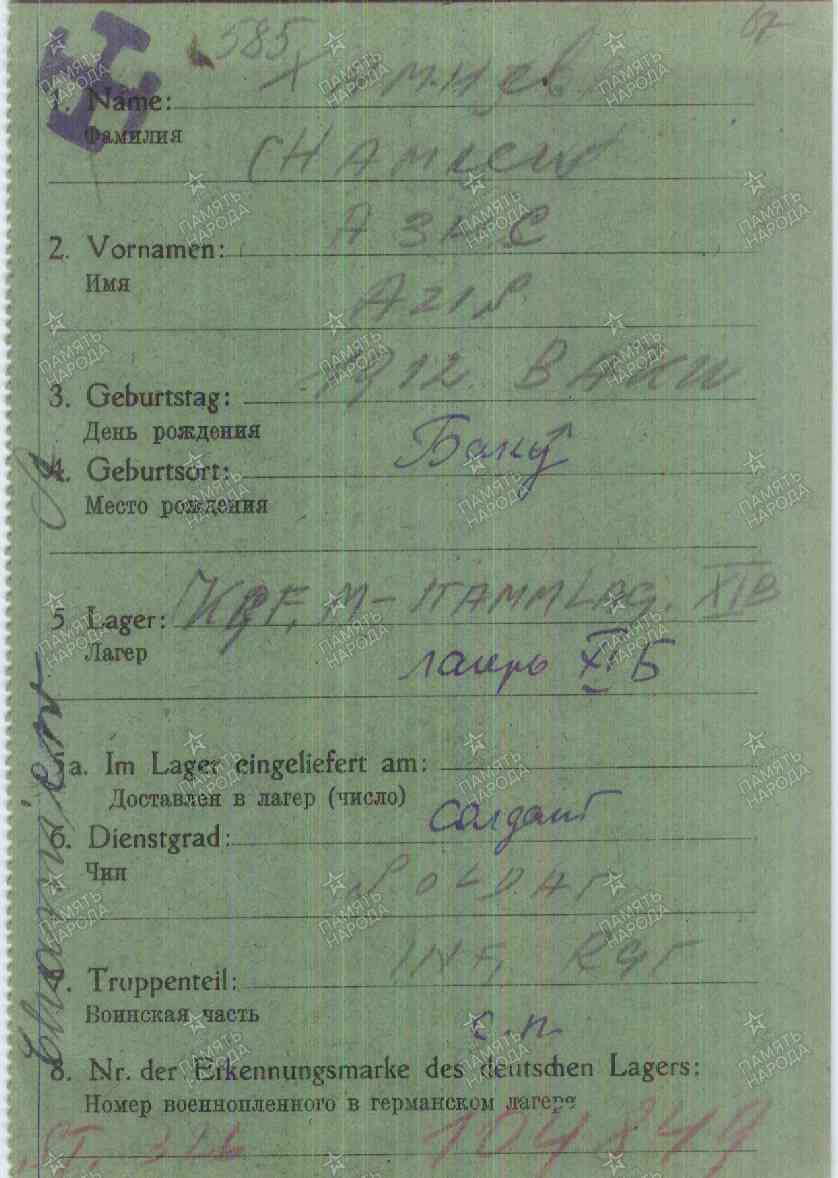 585 67
1. Name:
Фамилия
CHAMIEW
2. Vornamen: АЗИС
Имя
AZIS
3. Geburtstag: 1912. BAKU
День рождения
4. Geburtsort: Баку
Место рождения
5. Lager: KGF, M-STAMMLAG. XIB
Лагер
лагерь XI Б
5a. Im Lager eingeliefert am:
Доставлен в лагер (число)
солдат
6. Dienstgrad:
Чин
SOLDAT
7. Truppenteil: INF, RGT
Воинская часть
с.п.
8. Nr. der Erkennungsmarke des deutschen Lagers:
Номер военнопленного в германском лагере
104849
ПАМЯТЬ НАРОДА